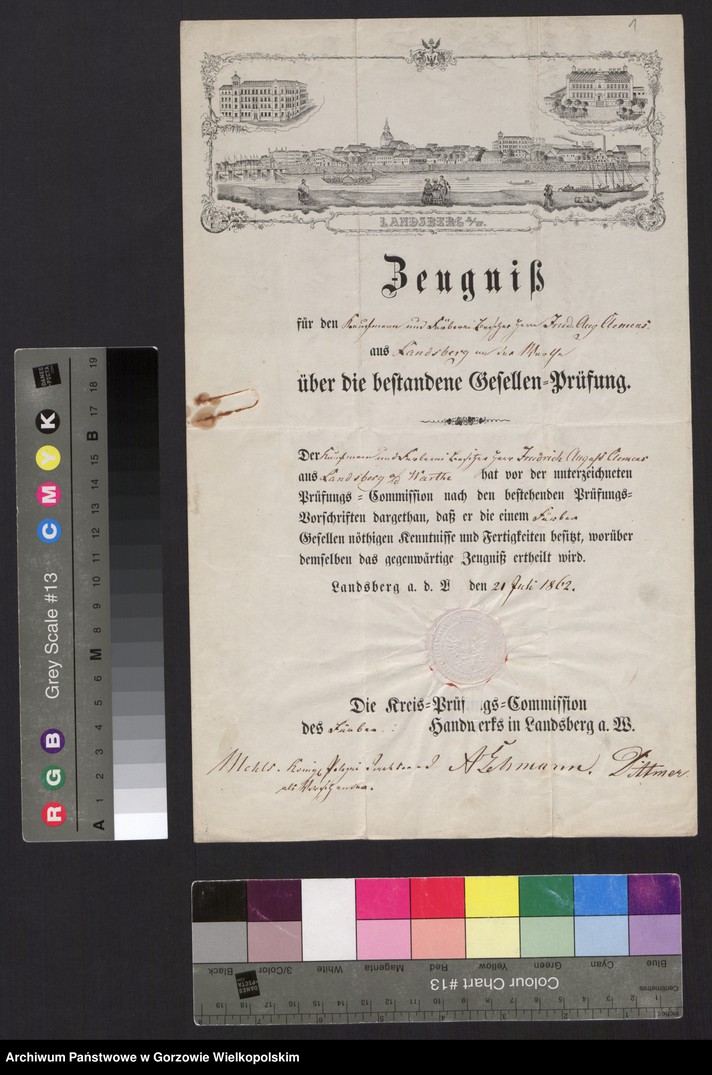 1
LANDSBERG a/W.
Zeugniß
für den Kaufmann und Färberei Besitzer Herrn Fried. Aug Clemens
aus Landsberg an der Warthe
über die bestandene Gesellen-Prüfung.
Der Kaufmann und Färberei Besitzer Herr Friedrich August Clemens
aus Landsberg a/d Warthe hat vor der unterzeichneten
Prüfungs-Commission nach den bestehenden Prüfungs-
Vorschriften dargethan, daß er die einem Färber
Gesellen nöthigen Kenntnisse und Fertigkeiten besitzt, worüber
demselben das gegenwärtige Zeugniß ertheilt wird.
Landsberg a. d. W den 21 Juli 1862.
Die Kreis-Prüfungs-Commission
des Färber Handwerks in Landsberg a. W.
Königl. ALehmann. Dittmer
als Vorsitzender.
Grey Scale #13
R G B C M Y K
A 1 2 3 4 5 6 M 8 9 10 11 12 13 14 15 B 17 18 19
DANES PICTA
Colour Chart #13
Blue Cyan Green Yellow Red Magenta White 3/Color Black
Centimetres
1 2 3 4 5 6 7 8 9 10 11 12 13 14 15 16 17 18 19
Inches
Archiwum Państwowe w Gorzowie Wielkopolskim